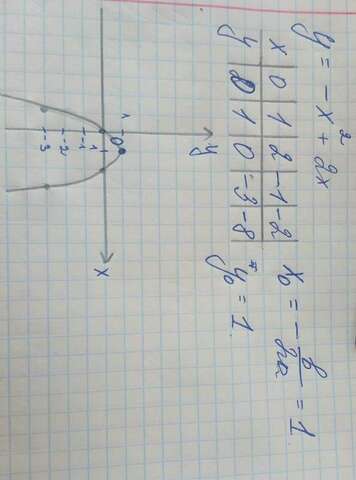 y = -x² + 2x
x 0 1 2 -1 -2
y 0 1 0 -3 -8
x₀ = -b/2a = 1
y₀ = 1
y
1
0 1 x
-1
-2
-3